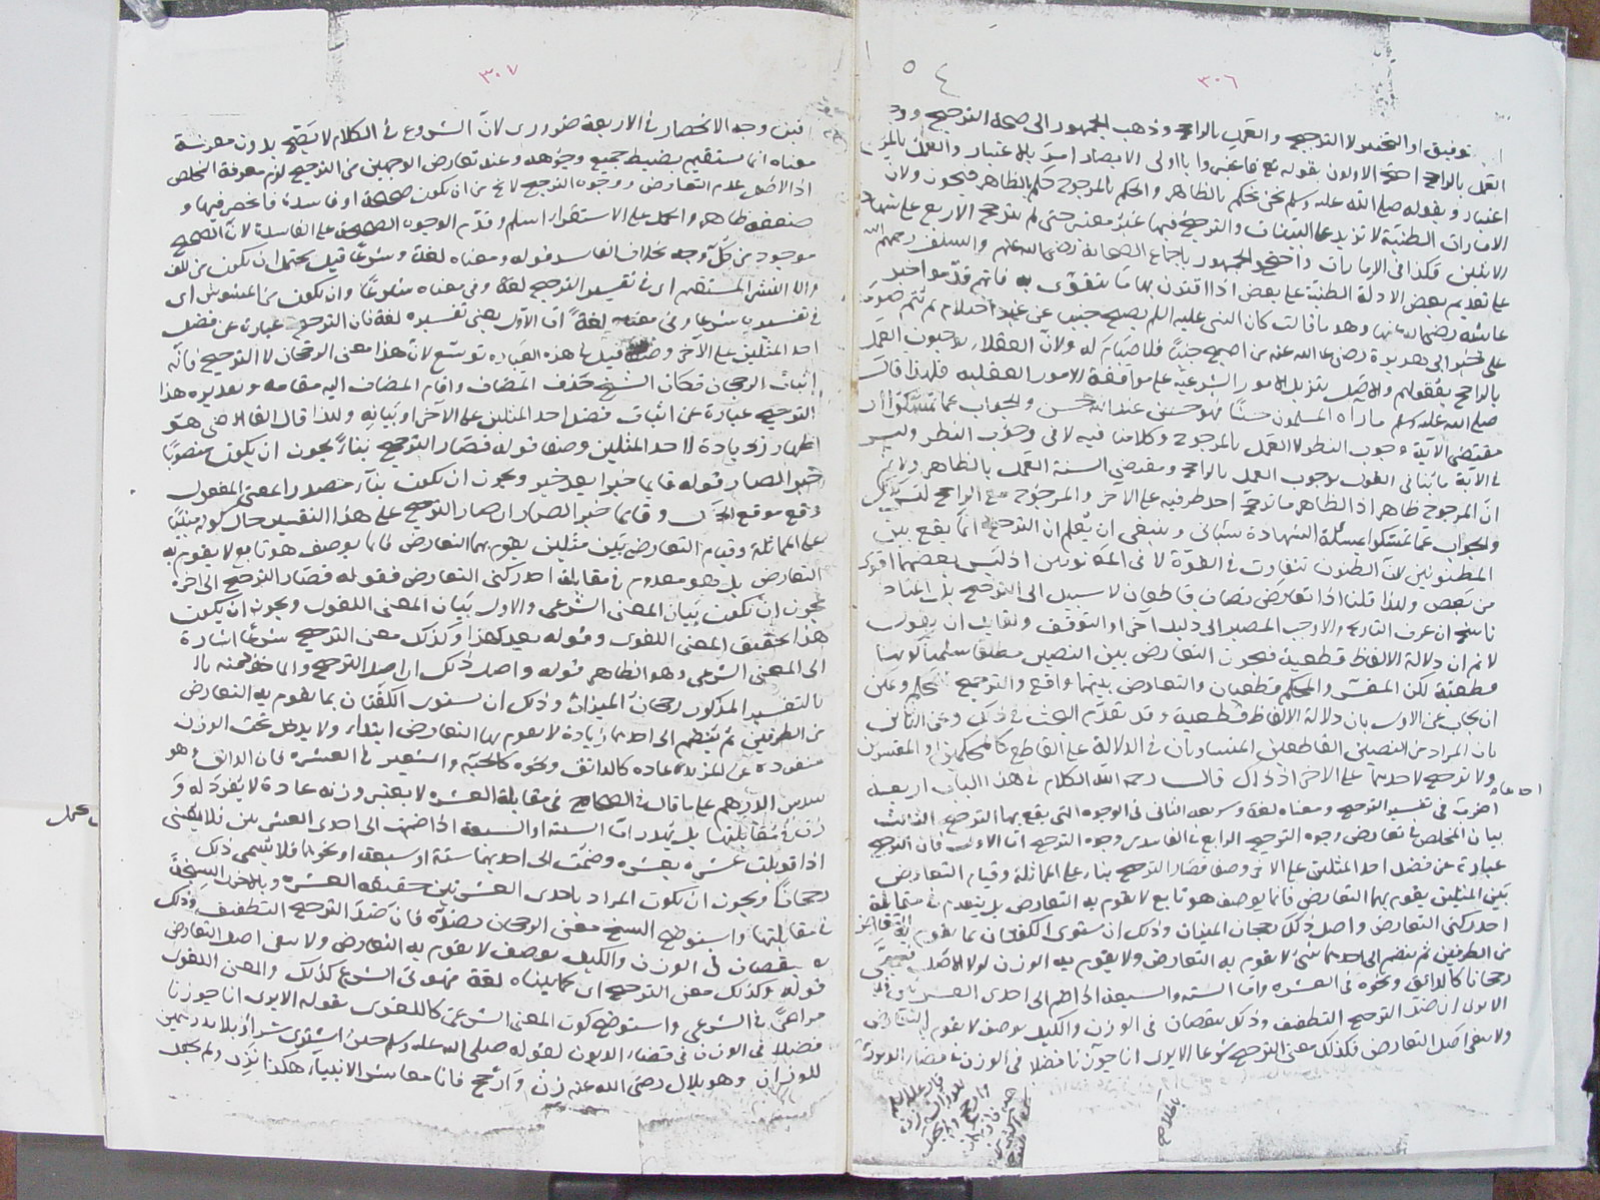 ٣٠٦
او التوقيف او التخيير لا الترجيح والعمل بالراجح وذهب الجمهور الى صحة الترجيح
العمل بالراجح احتج الاولون بقوله تعالى فاعتبروا يا اولى الابصار امر بالاعتبار والعمل
اعتبار وبقوله صلى الله عليه وسلم نحن نحكم بالظاهر والحكم بالمرجوح حكم بالظاهر فيجوز ولان
الامارات الظنية لا تزيد على البينات والترجيح فيها غير معتبر حتى لم يترجح الاربع على شهادة
الاثنين فكذا فى الامارات واحتج الجمهور باجماع الصحابة رضى الله عنهم والسلف رحمهم الله
على تقديم بعض الادلة الظنية على بعض اذا اقترن بها ما يتقوى به فانهم قدموا خبر
عائشة رضى الله عنها وهو ما قالت كان النبى عليه السلم يصبح جنبا من غير احتلام ثم يتم صومه
على خبر ابى هريرة رضى الله عنه من اصبح جنبا فلا صيام له ولان العقلاء يوجبون العمل
بالراجح بعقولهم والاصل تنزيل الامور الشرعية على موافقة الامور العقلية فلهذا قال
صلى الله عليه وسلم ما رآه المسلمون حسنا فهو حسن عند الله حسن والجواب عما تمسكوا ان
مقتضى الآية وجوب النظر لا العمل بالمرجوح وكلامنا فيه لا فى وجوب النظر وليس
فى الآية ما ينافى القول بوجوب العمل بالراجح ومقتضى السنة العمل بالظاهر ولا نم
ان المرجوح ظاهر اذ الظاهر ما ترجح احد طرفيه على الاخر والمرجوح مع الراجح ليس كذلك
والجواب عما تمسكوا بمسئلة الشهادة سياتى وينبغى ان يعلم ان الترجيح انما يقع بين
المظنونين لان الظنون تتفاوت فى القوة لا فى المعلومين اذ ليس بعضها اقوى
من بعض ولذا قلنا اذا تعارض نصان قاطعان لا سبيل الى الترجيح بل المتاخر
ناسخ ان عرف التاريخ والا وجب المصير الى دليل آخر او التوقف ولقائل ان يقول
لا نم ان دلالة الالفاظ قطعية فيجوز التعارض بين النصين مطلقا سلمنا كونها
قطعية لكن المفسر والمحكم قطعيان والتعارض بينهما واقع والترجيح للمحكم ويمكن
ان يجاب عن الاول بان دلالة الالفاظ قطعية وقد تقدم البحث فى ذلك وعن الثانى
بان المراد من النصين القاطعين المتساويان فى الدلالة على القاطع كالمحكمين او المفسرين
ولا ترجيح لاحدهما على الاخر اذ ذاك قال رحمه الله الكلام فى هذا الباب اربعة
احدها
اضرب فى تفسير الترجيح ومعناه لغة وشريعة الثانى فى الوجوه التى يقع بها الترجيح الثالث
بيان المخلص فى تعارض وجوه الترجيح الرابع فى الفاسد من وجوه الترجيح اما الاول فان الترجيح
عبارة عن فضل احد المثلين على الاخر وصفا فصار الترجيح بناء على المماثلة وقيام التعارض
بين المثلين يقوم بهما التعارض قائما بوصف هو تابع لا يقوم به التعارض بل ينعدم فى مقابلة
احد ركنى التعارض واصل ذلك رجحان الميزان وذلك ان تستوى الكفتان بما يقوم به التعارض
من الطرفين ثم ينضم الى احدهما شىء لا يقوم به التعارض ولا يقوم به الوزن لولا الاصل فسمى
رجحانا كالدانق ونحوه فى العشرة واما الستة والسبعة اذا ضم الى احدى العشرتين فلا
الا يرى ان ضد الترجيح التطفيف وذلك بنقصان فى الوزن والكيل بوصف لا يقوم به التعارض
ولا ينفى اصل التعارض فكذلك معنى الترجيح شرعا الا يرى انا جوزنا فضلا فى الوزن فى قضاء الديون
٣٠٧
فبين وجه الانحصار فى الاربعة ضرورى لان الشروع فى الكلام لا يتضح بدون معرفة
معناه انما يستقيم بضبط جميع وجوهه وعند تعارض الوجهين من الترجيح لزم معرفة المخلص
اذ الاصل عدم التعارض ووجوه الترجيح لا تخ من ان تكون صحيحة او فاسدة فانحصر فيها و
ضعفه ظاهر والحمل على الاستقراء اسلم وقدم الوجوه الصحيحة على الفاسدة لان الصحيح
موجود من كل وجه بخلاف الفاسد قوله ومعناه لغة وشرعا قيل يحتمل ان تكون من اللف
والنشر المستقيم اى فى تفسير الترجيح لغة وفى معناه شرعا وان تكون من المشوش اى
فى تفسيره شرعا وفى معناه لغة اما الاول يعنى تفسيره لغة فان الترجيح عبارة عن فضل
احد المثلين على الآخر وصفا قيل فى هذه العبارة توسع لان هذا معنى الرجحان لا الترجيح فانه
اثبات الرجحان فكان الشيخ حذف المضاف واقام المضاف اليه مقامه وتقديره هذا
الترجيح عبارة عن اثبات فضل احد المثلين على الآخر او بيانه ولذا قال القاضى هو
اظهار زيادة لاحد المثلين وصفا قوله فصار الترجيح بناء يجوز ان يكون منصوبا
خبرا لصار قوله قائما خبرا بعد خبر ويجوز ان تكون بناء مصدرا بمعنى المفعول
وقع موقع الحال وقائما خبر لصار اى صار الترجيح على هذا التفسير حال كونه مبنيا
على المماثلة وقيام التعارض بين مثلين يقوم بهما التعارض قائما بوصف هو تابع لا يقوم به
التعارض بل هو معدوم فى مقابلة احد ركنى التعارض فقوله فصار الترجيح الى آخره
يجوز ان تكون بيان المعنى الشرعى والاول بيان المعنى اللغوى ويجوز ان يكون
هذا تحقيق المعنى اللغوى وقوله بعد هذا وكذلك معنى الترجيح شرعا اشارة
الى المعنى الشرعى وهو الظاهر قوله واصل ذلك اى اصل الترجيح والماخوذ منه
بالتفسير المذكور رجحان الميزان وذلك ان تستوى الكفتان بما يقوم به التعارض
من الطرفين ثم ينضم الى احدهما زيادة لا يقوم بها التعارض ابتداء ولا يدخل تحت الوزن
منفردة عن المزيد عليه عادة كالدانق ونحوه كالحبة والشعير فى العشرة فان الدانق وهو
سدس الدرهم على ما قال فى الصحاح فى مقابلة العشرة لا يعتبر وزنه عادة لا يفرد له و
زن فى مقابلتها بل يهدر اما الستة او السبعة اذا ضمت الى احدى العشرتين فلا يعنى
اذا قوبلت عشرة بعشرة وضمت الى احديهما ستة او سبعة او نحوها فلا يسمى ذلك
رجحانا ويجوز ان تكون المراد باحدى العشرتين حقيقة العشرة وبالاخرى السنجة
فى مقابلتها واستوضح الشيخ معنى الرجحان بضده فان ضد الترجيح التطفيف وذلك
بنقصان فى الوزن والكيل بوصف لا يقوم به التعارض ولا ينفى اصل التعارض
قوله وكذلك معنى الترجيح اى كما بيناه لغة فهو فى الشرع كذلك والمعنى اللغوى
مراعى فى الشرعى واستوضح كون المعنى الشرعى كاللغوى بقوله الا يرى انا جوزنا
فضلا فى الوزن فى قضاء الديون لقوله صلى الله عليه وسلم حين اشترى سراويل بدرهمين
للوزان وهو بلال رضى الله عنه زن وارجح فانا معاشر الانبياء هكذا نزن ولم يجعل